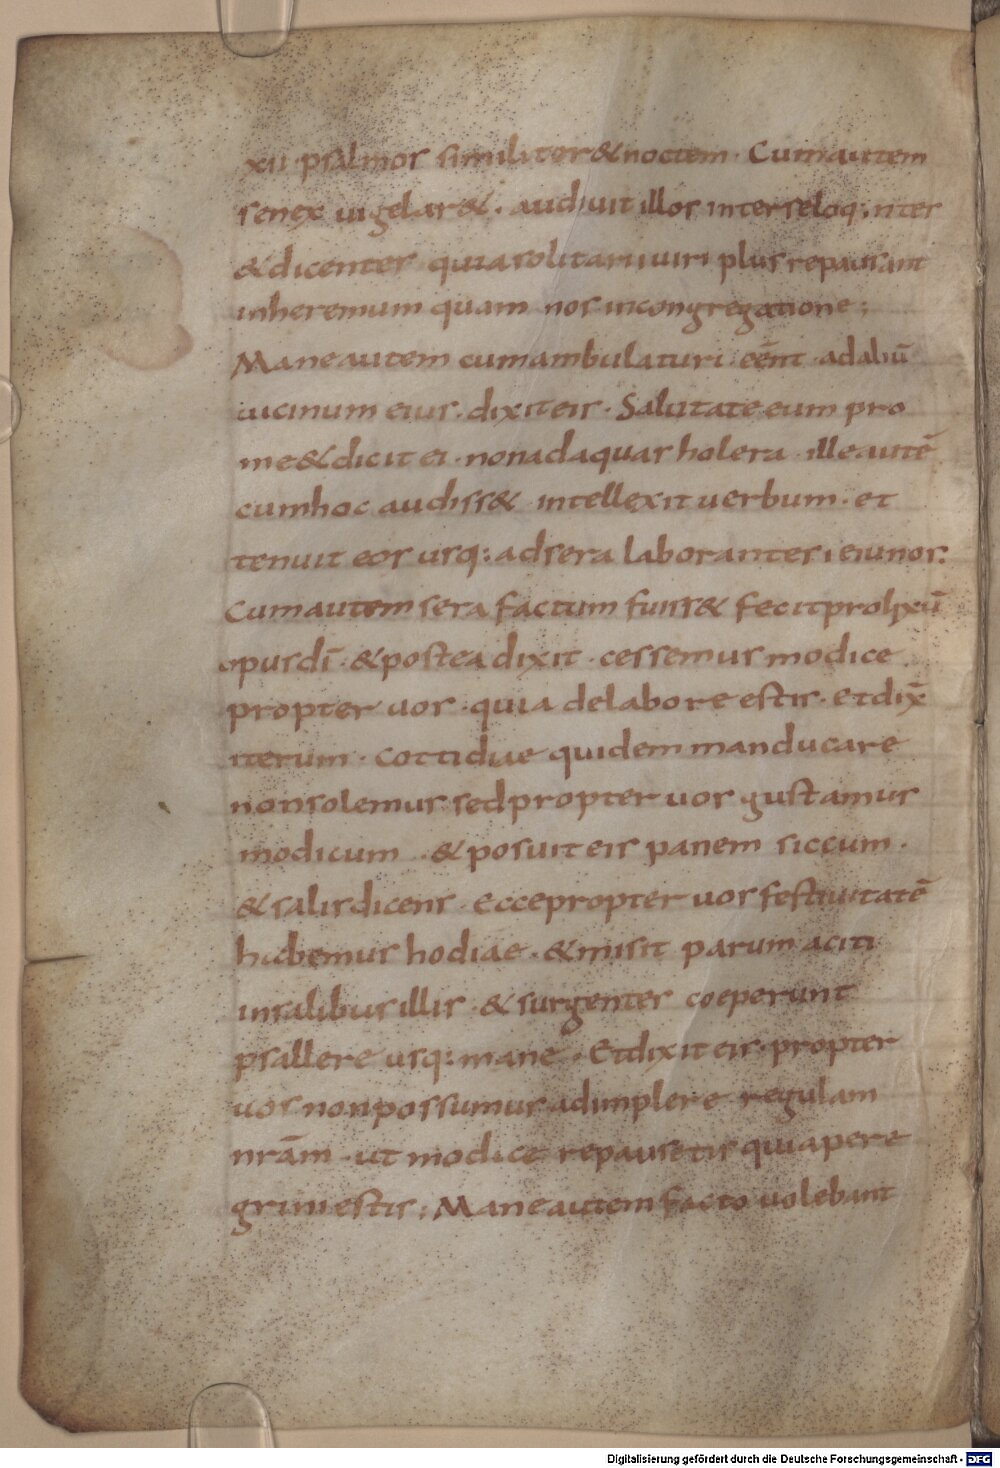 xii · psalmos similiter & noctem · Cum autem
senex uigelar& · audiuit illos inter se loq;ntes
& dicentes quia solitarii uiri plus repausant
inheremum quam nos in congregatione ;
Mane autem cum ambulaturi eēnt ad aliū
uicinum eius · dixit eis · Salutate eum pro
me & dicit ei · non adaquas holera · ille autē
cum hoc audiss& intellexit uerbum · et
tenuit eos usq: ad sera laborantes ieiunos ·
Cum autem sera factum fuiss& fecit prolixū
opus dī · & postea dixit · cessemus modice
propter uos · quia de labore estis · et dix̄
iterum · Cottidiae quidem manducare
non solemus sed propter uos gustamus
modicum · & posuit eis panem siccum ·
& salis dicens · Ecce propter uos festiuitatē
habemus hodiae · & misit parum aciti
in salibus illis · & surgentes coeperunt
psallere usq: mane · Et dixit eis · propter
uos non possumus adimplere regulam
nrām · ut modice repausetis quia pere
grini estis ; Mane autem facto uolebant
Digitalisierung gefördert durch die Deutsche Forschungsgemeinschaft - DFG